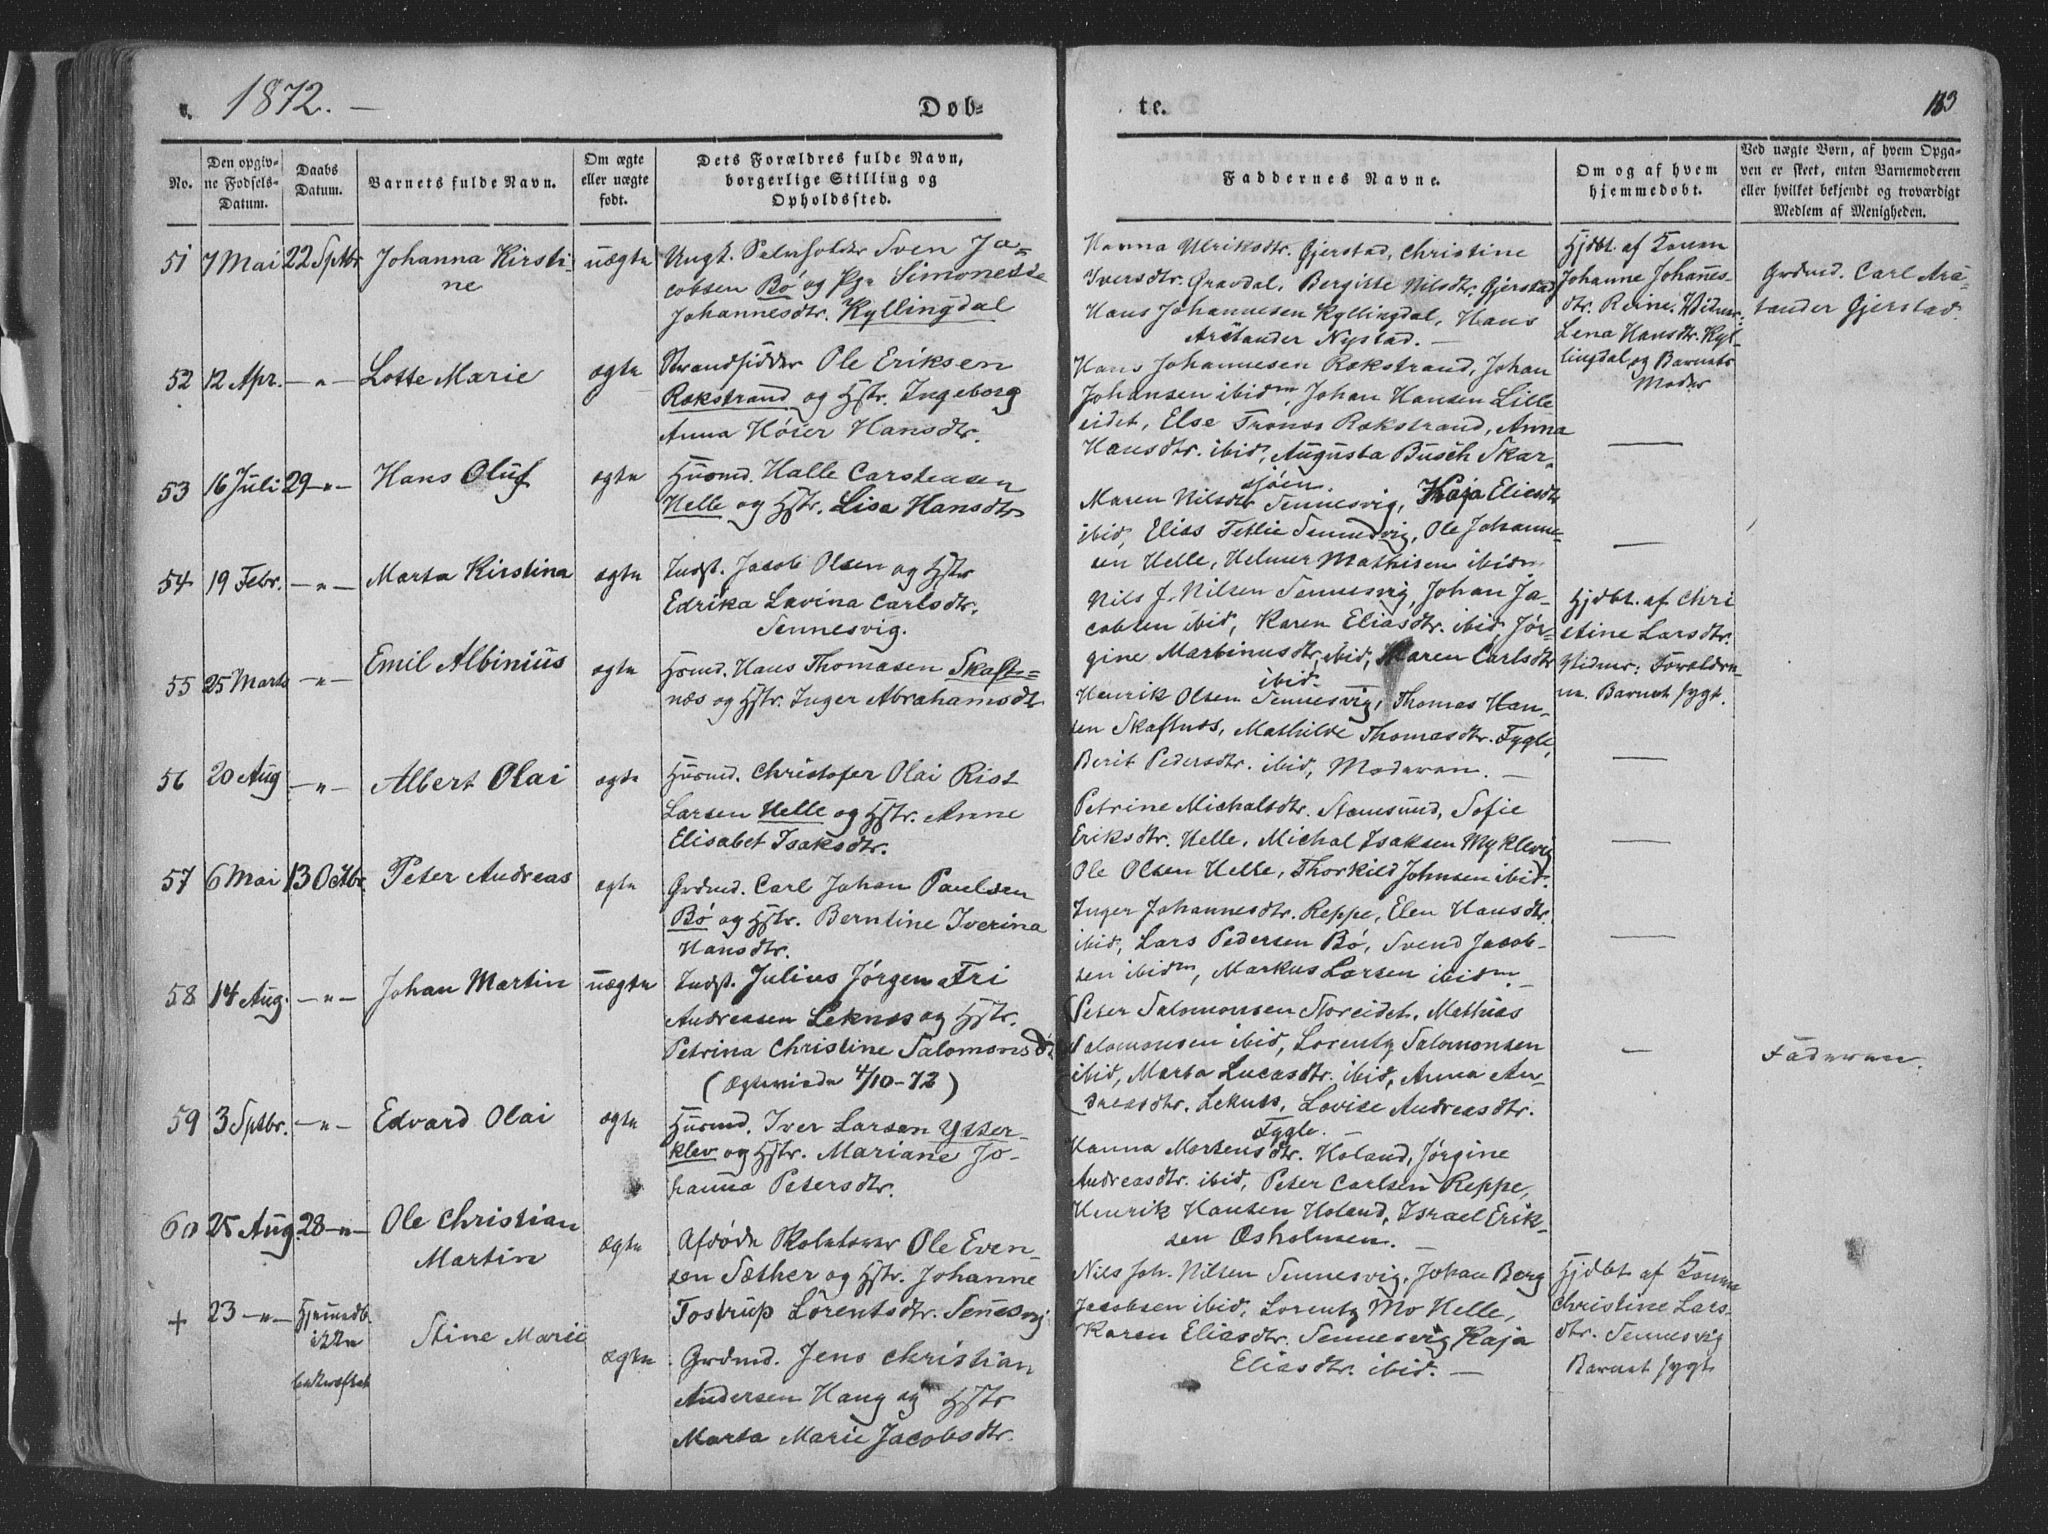 1872. —
Døb-
te.
183
No.
Den opgiv-
ne Fødsels-
Datum.
Daabs
Datum.
Barnets fulde Navn.
Om ægte
eller uægte
født.
Dets Forældres fulde Navn,
borgerlige Stilling og
Opholdssted.
Faddernes Navne.
Om og af hvem
hjemmedøbt.
Ved uægte Børn, af hvem Opga-
ven er skeet, enten Barnemoderen
eller hvilket bekjendt og troværdigt
Medlem af Menigheden.
51 7 Mai 22 Sptbr Johanna Kirsti-
ne
uægte
Ungk. Sven Ja-
cobsen Bø og Pge Simonette
Johannesdtr. Kyllingdal
Hanna Ulriksdtr. Gjerstad, Christine
Iversdtr. Gravdal, Bergitte Nilsdtr. Gjerstad
Hans Johannesen Kyllingdal, Hans
Arstander Nystad. —
Hjdbt. af Konen
Johanne Johanes-
dtr. Reine. Vidner:
Lena Hansdtr. Kyl-
lingdal og Barnets
Moder
Grdmd. Carl Ars-
tander Gjerstad.
52 12 Apr. —"— Lotte Marie
ægte
Strandsidder Ole Eriksen
Rækstrand og Hstr. Ingeborg
Anna Høier Hansdtr.
Hans Johannesen Rækstrand, Johan
Johansen ibidm, Johan Hansen Lille
eidet, Else Tronos Rækstrand, Anna
Hansdtr. ibid, Augusta Busch Skar-
sjøen.
—
53 16 Juli 29 —"— Hans Oluf
ægte
Husmd. Halle Carstensen
Helle og Hstr. Lisa Hansdtr
Maren Nilsdtr Sennesvig, Kaja Eliesdtr
ibid, Elias Tetlie Sennesvig, Ole Johanne-
sen Helle, Helmer Mathisen ibidm
—
54 19 Febr. —"— Marta Kirstina
ægte
Indst. Jacob Olsen og Hstr
Edrika Lavina Carlsdtr.
Sennesvig.
Nils J. Nilsen Sennesvig, Johan Ja-
cobsen ibid, Karen Eliasdtr. ibid, Jør-
gine Martinusdtr, ibid, Maren Carlsdtr
ibid.
Hjdbt. af Chri
stine Larsdtr.
Vidner: Forældre-
ne. Barnet sygt.
55 25 Marts —"— Emil Albinius
ægte
Hsmd. Hans Thomasen Skaft-
næs og Hstr. Inger Abrahamsdtr
Henrik Olsen Sennesvig, Thomas Han-
sen Skaftnæs, Mathilde Thomasdtr. Fygle,
Berit Pedersdtr. ibid, Moderen. —
—
56 20 Aug —"— Albert Olai
ægte
Husmd. Christofer Olai Rist
Larsen Helle og Hstr. Anne
Elisabet Isaksdtr.
Petrine Michalsdtr. Stamsund, Sofie
Eriksdtr. Helle, Michal Isaksen Myklevig
Ole Olsen Helle, Thorkild Johnsen ibid.
—
57 6 Mai 13 Octbr. Peter Andreas
ægte
Grdmd. Carl Johan Paulsen
Bø og Hstr. Berntine Iverina
Hansdtr.
Inger Johannesdtr. Reppe, Elen Hansdtr.
ibid, Lars Pedersen Bø, Svend Jacob-
sen ibidm, Markus Larsen ibidm. —
—
58 14 Aug. —"— Johan Martin
uægte
Indst. Julius Jørgen Fri
Andreasen Leknes og Hstr.
Petrina Christine Salomonsdtr
(Ægteviede 4/10-72)
Peter Salomonsen Storeidet, Mathias
Salomonsen ibid, Lorentz Salomonsen
ibid, Marta Lucasdtr. ibid, Anna An-
dreasdtr. Leknes, Lovise Andreasdtr.
Fygle. —
—
Faderen.
59 3 Sptbr. —"— Edvard Olai
ægte
Husmd. Iver Larsen Ytter-
klev og Hstr. Mariane Jo-
hanna Petersdtr.
Hanna Mortensdtr. Holand, Jørgine
Andreasdtr. ibid, Peter Carlsen Reppe,
Henrik Hansen Holand, Israel Erik-
sen Osholmen. —
60 25 Aug. 28 —"— Ole Christian
Martin
ægte
Afdøde Skolelærer Ole Even-
sen Sæther og Hstr. Johanne
Tostrup Lorentsdtr. Senesvig
Nils Joh. Nilsen Sennesvig, Johan Berg
Jacobsen ibid, Lorentz Mo Helle,
Karen Eliasdtr. Sennesvig, Kaja
Eliasdtr. ibid. —
Hjdbt af Konen
Christine Lars-
dtr. Sennesvig
Barnet sygt
+ 23 —"— Hjemdb.
ikke
bekræftet
Stine Marie
ægte
Grdmd. Jens Christian
Andersen Haug og Hstr
Marta Marie Jacobsdtr.